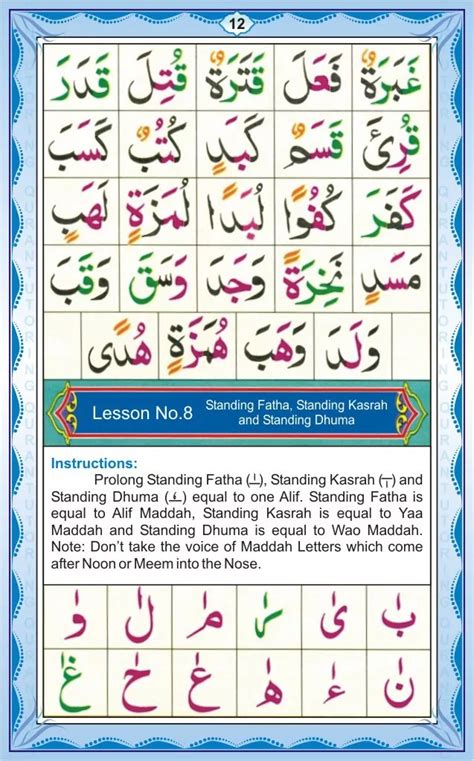 12
غَبَرَةٌ فَعَلَ قَتَرَةٌ قُتِلَ قَدَرَ
قُرِئَ قَسَمٌ كَبَدٍ كُتُبٌ كَسَبَ
كَفَرَ كُفُوًا لُبَدًا لُمَزَةٍ لَهَبٍ
مَسَدٍ نَخِرَةً وَجَدَ وَسَقَ وَقَبَ
وَلَدَ وَهَبَ هُمَزَةٍ هُدًى
Lesson No.8
Standing Fatha, Standing Kasrah
and Standing Dhuma
Instructions:
Prolong Standing Fatha (ـٰ), Standing Kasrah (ـٖ) and
Standing Dhuma (ـٗ) equal to one Alif. Standing Fatha is
equal to Alif Maddah, Standing Kasrah is equal to Yaa
Maddah and Standing Dhuma is equal to Wao Maddah.
Note: Don't take the voice of Maddah Letters which come
after Noon or Meem into the Nose.
بٰ یٰ رٰ مٰ لٰ وٰ
نٰ ءٰ هٰ عٰ حٰ غٰ
QURANTUTORING QURANTUTORING
QURANTUTORING QURANTUTORING